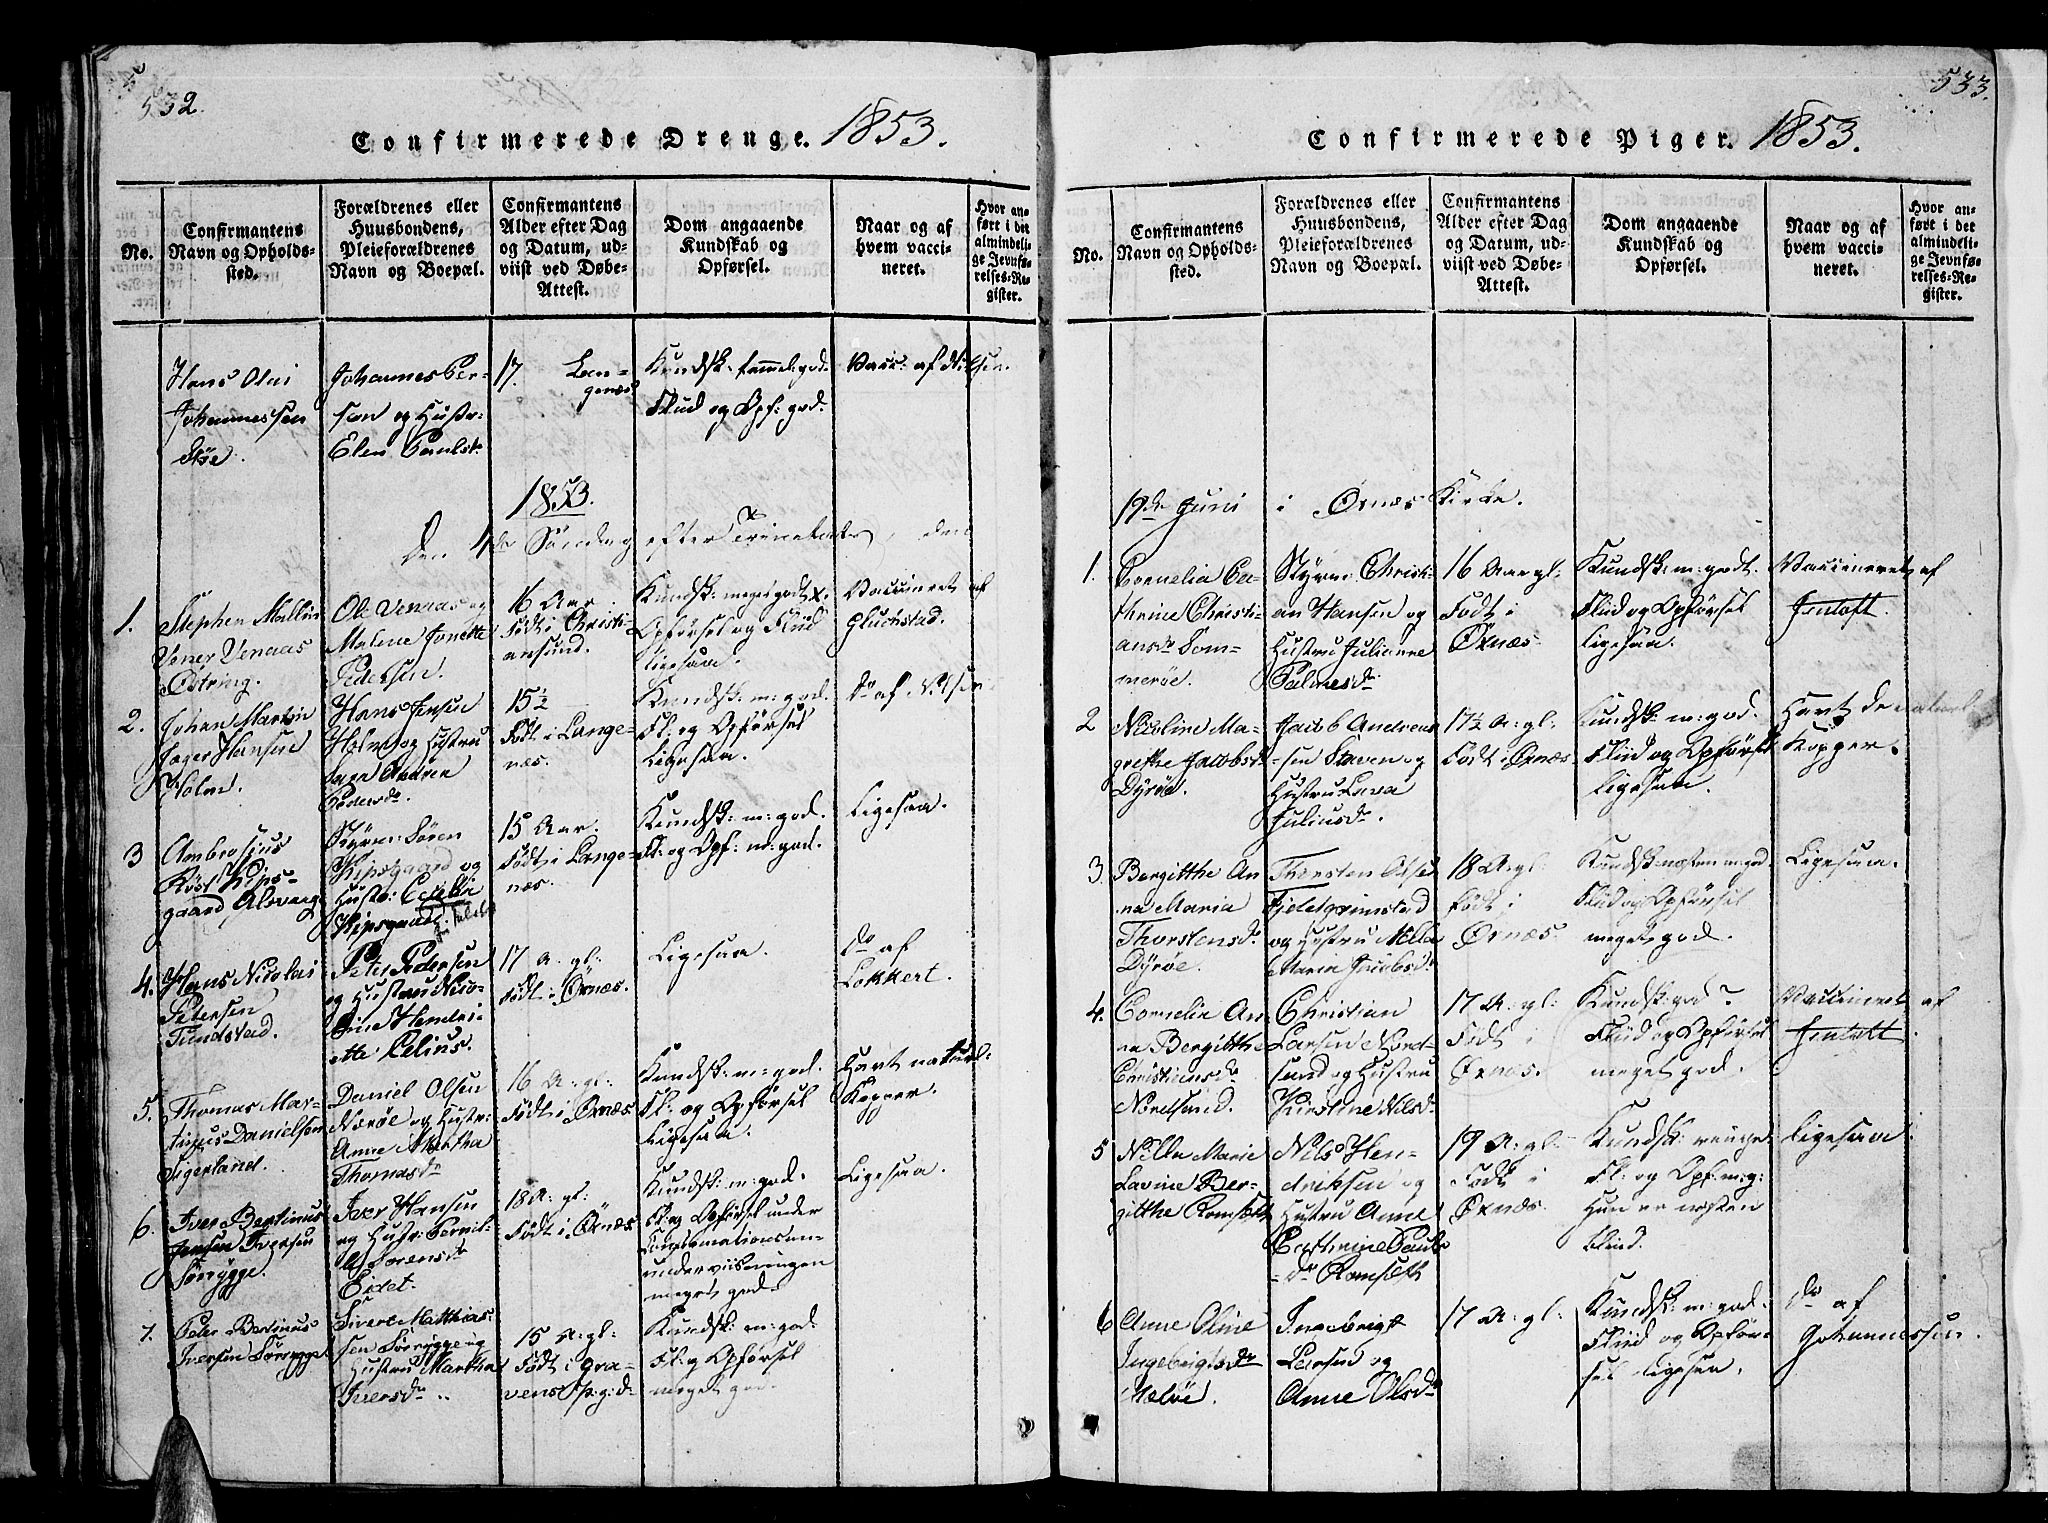 532.
Confirmerede Drenge. 1853.
No.
Confirmantens
Navn og Opholds-
sted.
Forældrenes eller
Huusbondens,
Pleieforældrenes
Navn og Boepæl.
Confirmantens
Alder efter Dag
og Datum, ud-
viist ved Døbe-
Attest.
Dom angaaende
Kundskab og
Opførsel.
Naar og af
hvem vacci-
neret.
Hvor an-
ført i det
almindeli-
ge Jevnfø-
relses-Re-
gister.
Hans Olai
Johannessen
Støe.
Johannes Per-
son og Hustr.
Elen Paulsdr.
17. Lan-
genæs
Kundsk: temmel: god.
Fliid og Opf: god.
Vacc: af Nilsen.
1853.
Den 4de Søndag efter Trinetatis, den
1.
Stephen Mallin
Vener Venaas
Østring.
Ole Venaas og
Malene Jonette
Pedersen.
16 Aar
Født i Christi-
ansund.
Kundsk: meget godt
Opførsel og Fliid
ligesaa.
Vaccineret af
Gluckstad.
2.
Johan Martin
Jager Hansen
Holm.
Hans Jensen
Holm og Hustru
Pedersdr.
15½
Født i Lange-
næs.
Kundsk: m: god.
Fl: og Opførsel
ligesaa.
Do af Nilsen
3
Ambrosius
Røst Kips-
gaard Alsvaag
Styrm: Søren
Kipsgaard og
Hustr: Cecilia
Kipsgaard
15 Aar.
Født i Lange-
næs.
Kundsk: m: god.
Fl: og Opf: m: god.
Ligesaa.
4.
Hans Nicolai
Petersen
Tundstad.
Peter Pedersen
og Hustru Nico-
line Hendri-
ette Celius.
17 A: gl:
Født i Örnæs.
Ligesaa.
Do af
Lokkert.
5.
Thomas Mar-
tinus Danielsen
Tigerland.
Daniel Olsen
Nærøe og Hustr:
Anne Martha
Thomasdr
16 A: gl:
Født i Ørnæs
Kundsk: m: god.
Fl: og Opførsel
ligesaa.
Havt naturl:
Kopper.
6.
Iver Bertinus
Jensen Iversen
Sørrygge.
Iver Hansen
og Hustr: Pernil-
le Sorensdr
Eidet.
18 A: gl:
Født i Örnæs
Kundsk: m: god.
Fl: og Opførsel under
Confirmationsun-
derviisningen
meget god.
Ligesaa.
7.
Peter Bertinus
Iversen Sørrygge
Sivert Matthias-
sen Sørrygge og
Hustru Martha
Iversdr.
15 A: gl:
Født i Gra-
vens Pgjd:
Kundsk: m: god.
Fl: og Opførsel
meget god.
533.
Confirmerede Piger. 1853.
No.
Confirmantens
Navn og Opholds-
sted.
Forældrenes eller
Huusbondens,
Pleieforældrenes
Navn og Boepæl.
Confirmantens
Alder efter Dag
og Datum, ud-
viist ved Døbe-
Attest.
Dom angaaende
Kundskab og
Opførsel.
Naar og af
hvem vacci-
neret.
Hvor an-
ført i det
almindeli-
ge Jevnfø-
relses-Re-
gister.
19de Juni i Ørnæs Kirke.
1.
Cornelia Ca-
thrine Christi-
ansdr Tom-
merøe.
Styrm: Christi-
an Hansen og
Hustru Julianne
Palmesdr
16 Aar gl:
Født i
Ørnæs
Kundsk: m: godt.
Fliid og Opførsel
ligesaa.
Vaccineret af
Jentoft.
2
Nicoline Ma-
grethe Jacobsdr
Dyrøe.
Jacob Andreas-
sen Staven og
Hustru Lava
Juliusdr.
17½ A: gl:
Født i Örnæs
Kundsk: m: god.
Fliid og Opførsel
ligesaa.
Havt de naturl
Kopper.
3.
Bergitthe An-
na Maria
Thorstensdr.
Dyrøe.
Thorsten Olsen
Fjeldgrimstad
og Hustru Mila
Maria Jacobsdr
18 A: gl:
født i
Ørnæs
Kundsk: næsten m: god
Fliid og Opførsel
meget god.
Ligesaa.
4.
Cornelia An-
na Bergitthe
Christiansdr
Nordsund.
Christian
Larsen Nord-
sund og Hustru
Kirstine Nilsdr
17 A: gl:
Født i
Ørnæs.
Kundsk: god?
Fliid og Opførsel
meget god.
Vaccineret af
Jentoft.
5
Nilla Marie
Lavine Ber-
gitthe Romsæth
Nils Hen-
driksen og
Hustru Anne
Cathrine Pauls-
dr Romsæth
19 A: gl:
Født i
Ørnæs.
Kundsk: ringe.
Fl: og Opf: m: g:
Hun er næsten
blind.
Ligesaa.
6
Anne Oline
Ingebrigtsdr
Mæløe.
Ingebrigt
Larsen og
Anne Olsdr
17 A: gl:
Kundsk: m: god.
Fliid og Opfør-
sel ligesaa.
Do af
Johannessen.